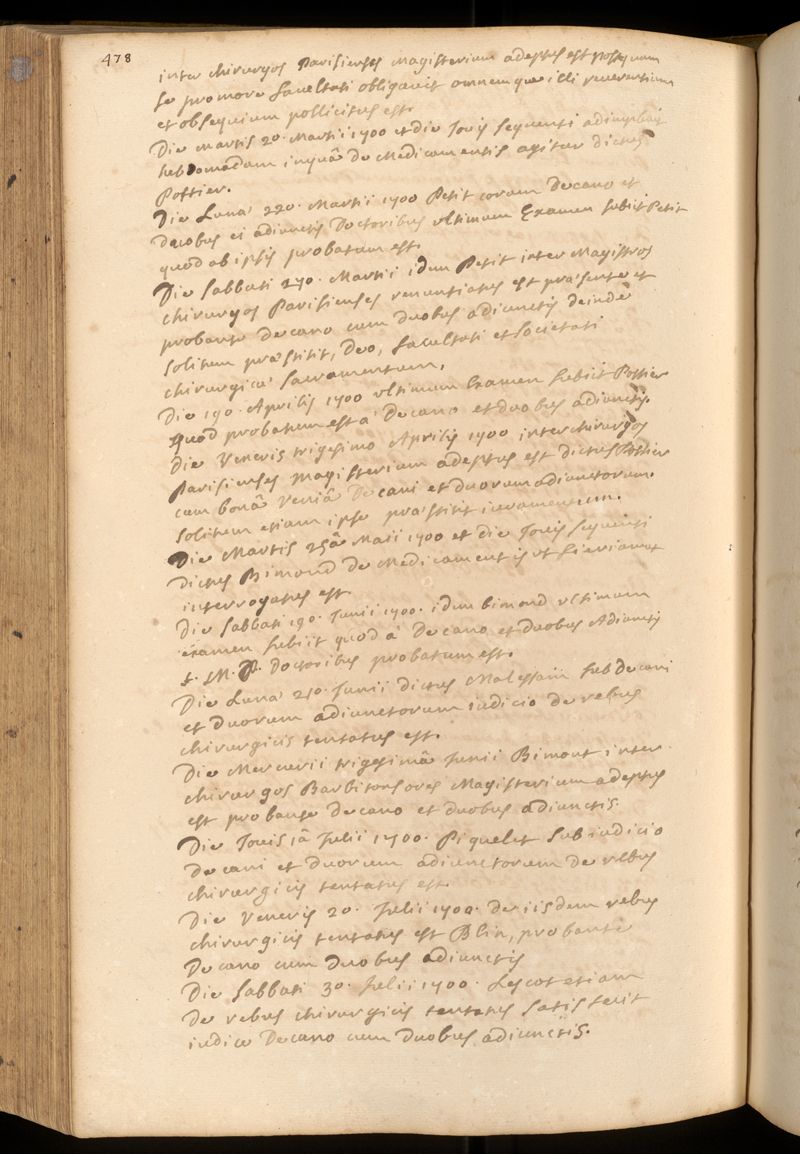 478
inter chirurgos Parisienses magisterium adeptus est postquam
se promore facultati obligavit omnemque illi reverentiam
et obsequium pollicitus est.
Die martis 2o. Martii 1700 et die Jovis sequenti adimplevit
hebdomadam in quâ de Medicamentis agitur dictus
Pottier.
Die Lunæ 22o. Martii 1700 Petit coram Decano et
duobus ei adiunctis Doctoribus ultimum Examen subiit Petit
quod ab ipsis probatum est.
Die Sabbati 27o. Martii idem Petit inter Magistros
chirurgos Parisienses renuntiatus est præsente et
probante decano cum duobus adiunctis deinde
solitum præstitit, Deo, facultati et Societati
chirurgicæ Sacramentum.
Die 19o. Aprilis 1700 ultimum Examen subiit Pottier
Quod probatum est a Decano et duobus adiunctis.
Die Veneris trigesimo Aprilis 1700 inter chirurgos
Parisienses magisterium adeptus est dictus Pottier
cum bonâ veniâ Decani et duorum adiunctorum.
solitum etiam ipse præstitit iuramentum.
Die Martis 25â Maii 1700 et die Jovis sequenti
dictus Bimond de Medicamentis ut
interrogatus est.
Die Sabbati 19o. Junii 1700. idem bimond ultimum
examen subiit quod a Decano et duobus Adiunctis
f. M. P. Doctoribus probatum est.
Die Lunæ 21o. Junii dictus Malessain sub decani
et duorum adiunctorum iudicio de rebus
chirurgicis tentatus est.
Die Mercurii trigesimâ Junii Bimont inter
chirurgos Barbitonsores Magisterium adeptus
est probante decano et duobus adiunctis.
Die Jovis 1â Julii 1700. Piquelet sub iudicio
Decani et duorum adiunctorum de rebus
chirurgicis tentatus est.
Die Veneris 2o. Julii 1700. de iisdem rebus
chirurgicis tentatus est Blin, probante
Decano cum duobus adiunctis
Die Sabbati 3o. Julii 1700. Lescot etiam
de rebus chirurgicis tentatus satisfecit
iudice Decano cum duobus adiunctis.